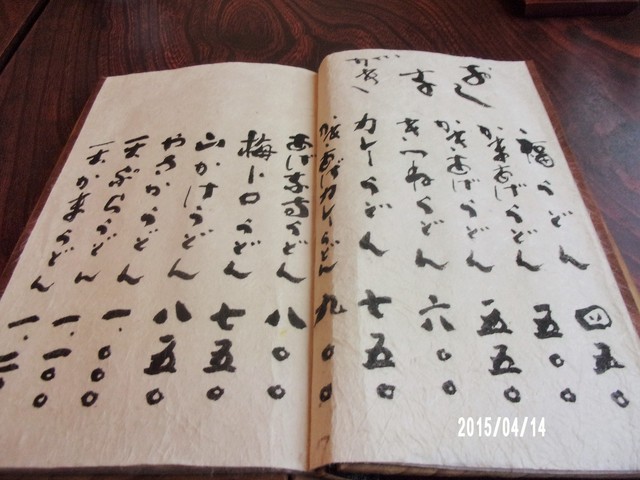 おし
な
がき
福うどん 四五〇
かまあげうどん 五〇〇
かきあげうどん 五五〇
きつねうどん 六〇〇
カレーうどん 七五〇
かきあげカレーうどん 九〇〇
あげなすうどん 八〇〇
梅トロうどん 七五〇
山かけうどん 八五〇
うどん 一.〇〇〇
天ぷらうどん 一.一〇〇
天かまうどん 一.二
2015/04/14